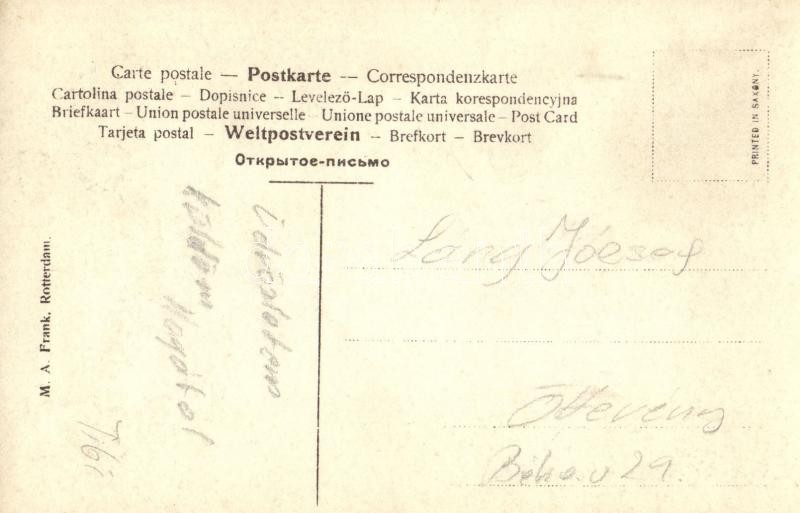 Carte postale — Postkarte — Correspondenzkarte
Cartolina postale – Dopisnice – Levelező-Lap – Karta korespondencyjna
Briefkaart – Union postale universelle – Unione postale universale – Post Card
Tarjeta postal – Weltpostverein – Brefkort – Brevkort
Открытое-письмо
PRINTED IN SAXONY.
M. A. Frank, Rotterdam.
Üdvözletem
küldöm
Tibi
Láng József
Öttevény
Béke u 29.